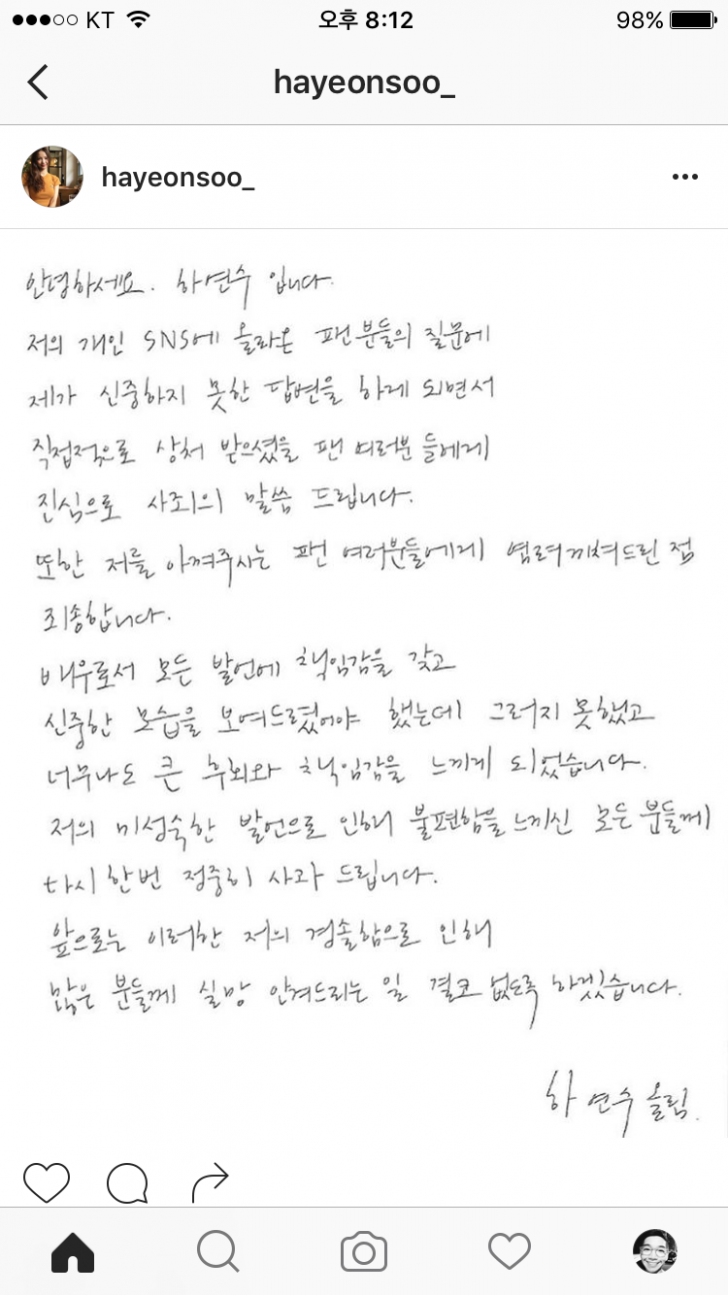 KT 오후 8:12 98%
hayeonsoo_
hayeonsoo_
안녕하세요. 하연수 입니다.
저의 개인 SNS에 올라온 팬 분들의 질문에
제가 신중하지 못한 답변을 하게 되면서
직접적으로 상처 받으셨을 팬 여러분 들에게
진심으로 사죄의 말씀 드립니다.
또한 저를 아껴주시는 팬 여러분들에게 염려끼쳐드린 점
죄송합니다.
배우로서 모든 발언에 책임감을 갖고
신중한 모습을 보여드렸어야 했는데 그러지 못했고
너무나도 큰 후회와 책임감을 느끼게 되었습니다.
저의 미성숙한 발언으로 인해 불편함을 느끼신 모든 분들께
다시 한번 정중히 사과 드립니다.
앞으로는 이러한 저의 경솔함으로 인해
많은 분들께 실망 안겨드리는 일 결코 없도록 하겠습니다.
하연수 올림.